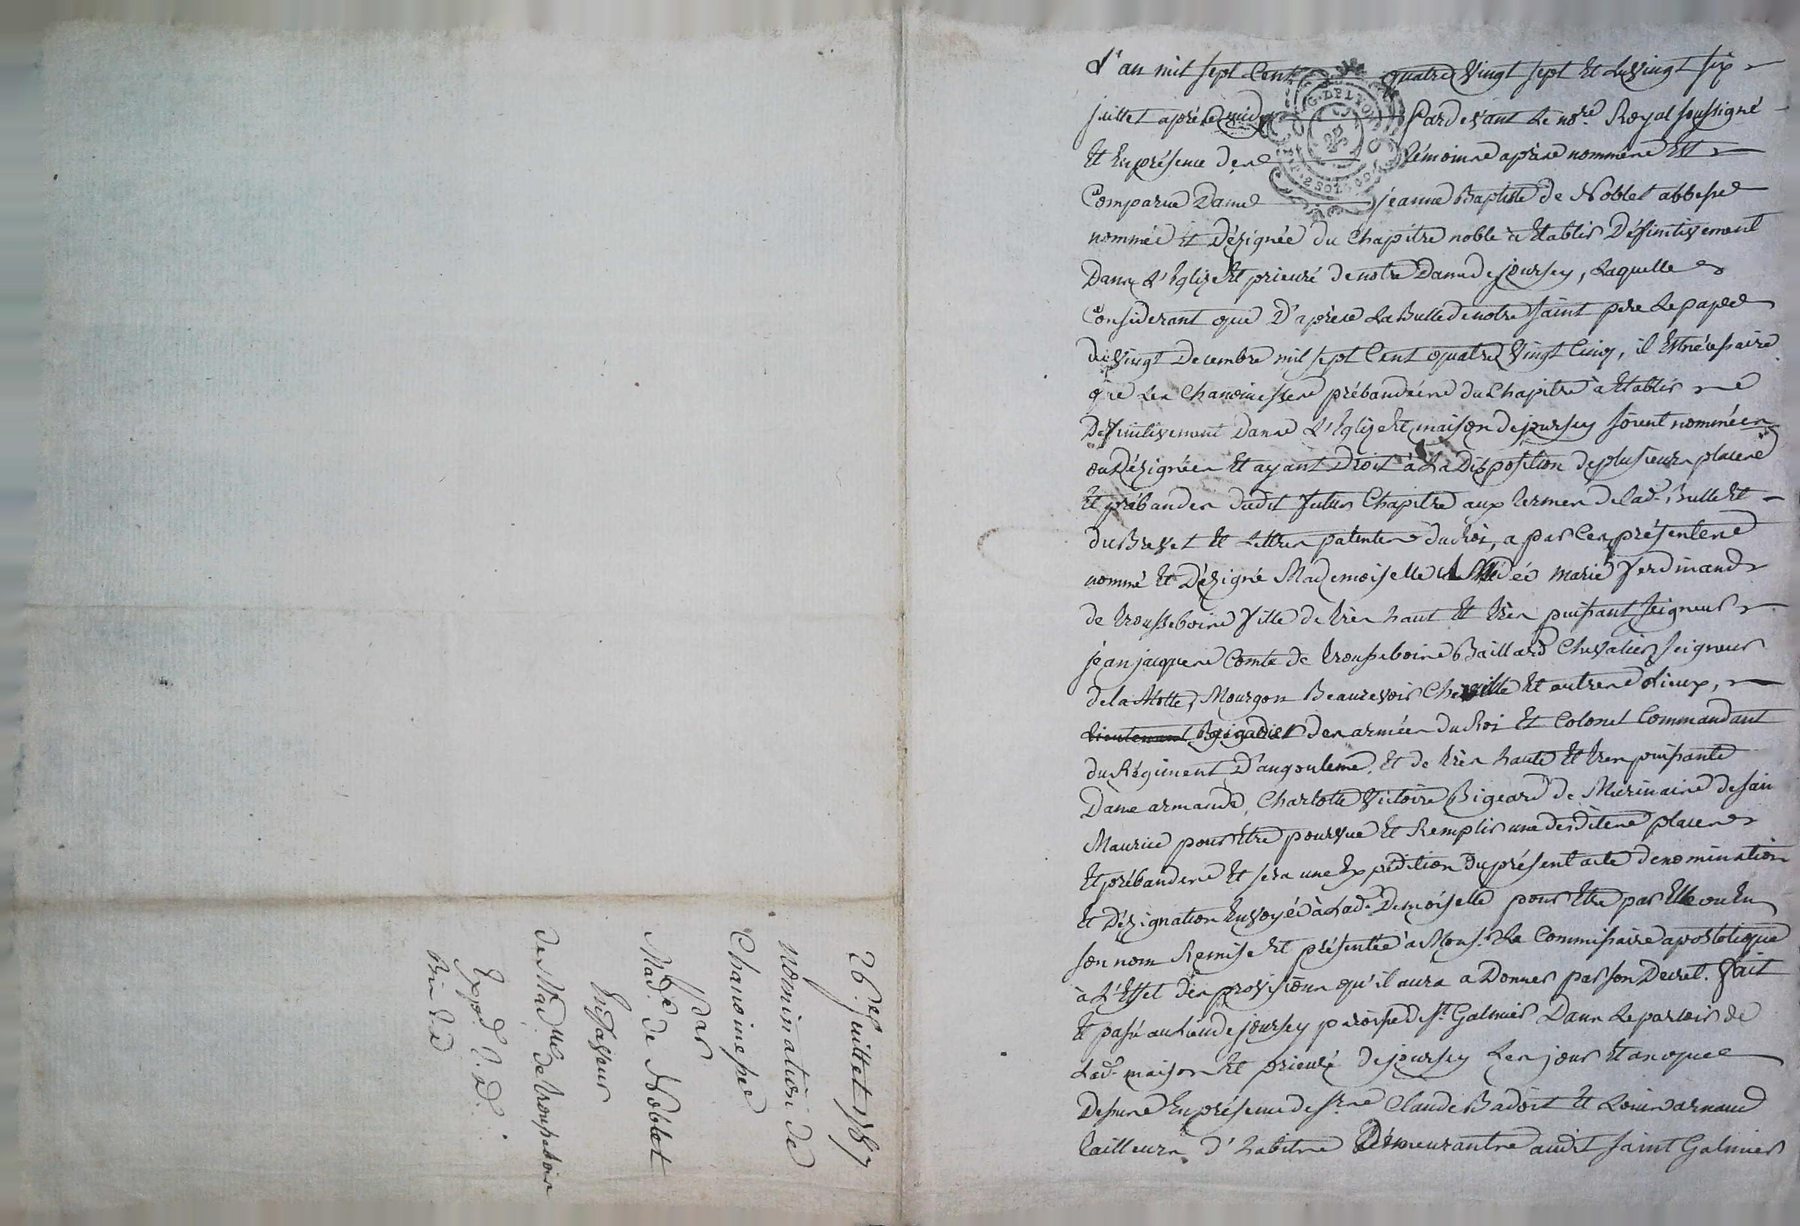 26 Juillet 1787
Nomination de
Chanoinesse
par
Mad.e de Noblet
En faveur
de Mad.lle de troussebois
Exp.d
L'an mil sept Cent quatre Vingt sept Et Le Vingt six
juillet après midy Pardevant Le no.re Royal soussigné
Et En présence des témoins après nommés Est
Comparue Dame jeanne Baptiste de Noblet abbesse
nommée Et Dézignée du Chapitre noble à Etablir Définitivement
Dans L'Eglize Et prieuré de notre Dame de joursey, Laquelle
Considerant que D'après La Bulle de notre saint pere Le pape
du Vingt Decembre mil sept Cent quatre Vingt Cinq, il Est nécessaire
que Les Chanoinesses prébandées du Chapitre à Etablir
Definitivement Dans L'Eglize Et maison de joursey soient nommées
ou Dézignées Et ayant Droit à La Disposition de plusieurs places
Et prébandes dudit futur Chapitre aux termes de lad. Bulle Et
du Brevet Et Lettres patentes du Roi, a par Ces présentes
nommé Et Dézigné Mademoiselle Marie ferdinand
de troussebois fille de très haut Et très puissant seigneur
jean jacques Comte de troussebois Baillard Chevalier seigneur
de la Motte, Mourgon Beaurevoir Et autres Lieux,
Lieutenant Brigadier des armées du Roi Et Colonel Commandant
du Régiment D'angouleme, Et de très haute Et très puissante
Dame armande, Charlotte Victoire Bigeard de Murinais de sain
Maurice pour Etre pourvue Et Remplir une desdites places
Et prébandes Et sera une Expédition du présent acte de nomination
Et Dézignation Envoyée à Lad. Demoiselle pour Etre par Elle ou En
son nom Remise Et présentée à Mons.r Le Commissaire apostolique
à L'Effet des provisions qu'il aura a Donner par son Decret. fait
Et passé au Lieu de joursey paroisse de S.t Galmier Dans Le parloir de
Lad. maison Et prieuré de joursey Les jour Et an que
Dessus En présence de s.rs Claude Badoit Et Louis arnaud
tailleurs d'habits Demeurants audit saint Galmier